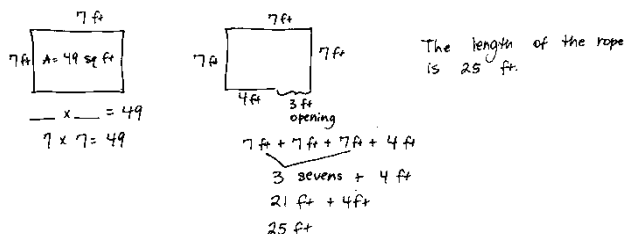 7 ft
7 ft
A = 49 sq ft
__ x __ = 49
7 x 7 = 49
7 ft
7 ft
7 ft
4 ft
3 ft
opening
7 ft + 7 ft + 7 ft + 4 ft
3 sevens + 4 ft
21 ft + 4 ft
25 ft
The length of the rope
is 25 ft.